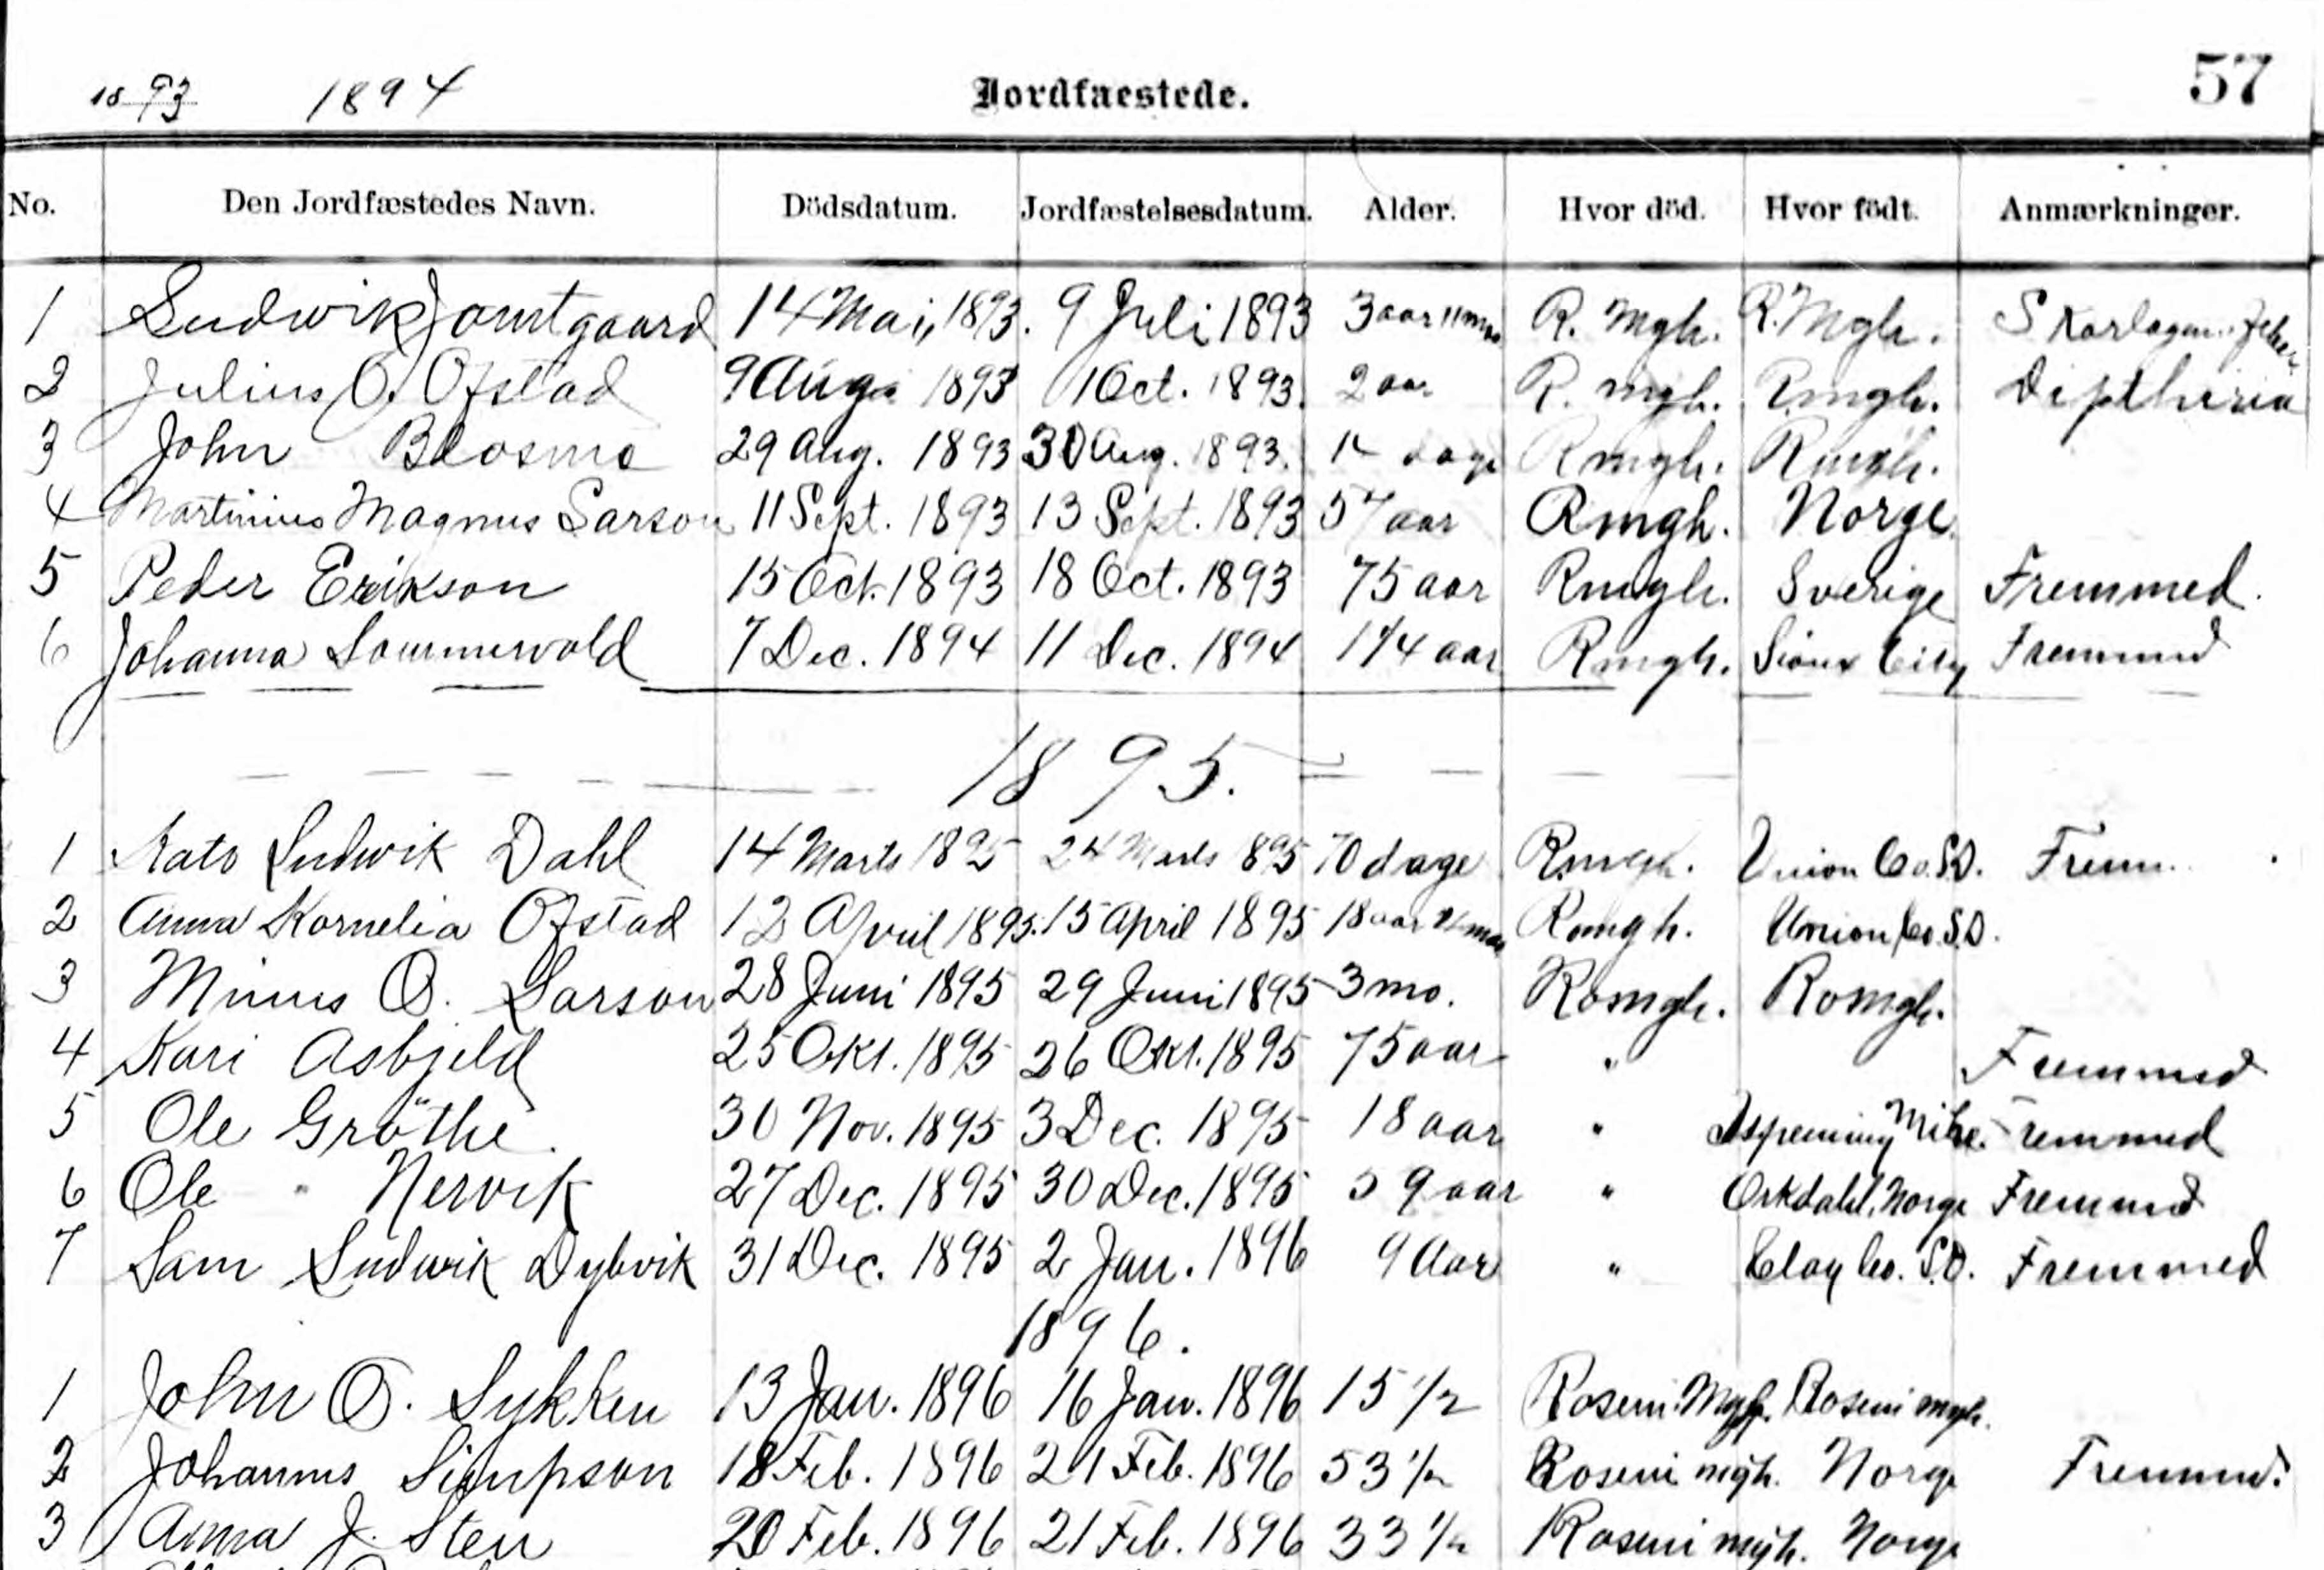 1893 1894 Jordfaestede. 57
No. Den Jordfæstedes Navn. Dödsdatum. Jordfæstelsesdatum. Alder. Hvor död. Hvor födt. Anmærkninger.
1 Ludwik Jomtgaard 14 Mai, 1893. 9 Juli 1893 3 aar 11 mo R. Mgh. R. Mgh. Skarlagen
2 Julius O. Ofstad 9 Aug 1893 1 Oct. 1893. 2 aar R. mgh. Rmgh. Diptheria
3 John 29 Aug. 1893 30 Aug. 1893. dage Rmgh. Rmgh.
4 Martinius Magnus Larson 11 Sept. 1893 13 Sept. 1893 57 aar Rmgh. Norge.
5 Peder Erikson 15 Oct. 1893 18 Oct. 1893 75 aar Rmgh. Sverige Fremmed.
6 Johanna Sommervold 7 Dec. 1894 11 Dec. 1894 aar Rmgh. Sioux City Fremmed
1895.
1 Ludwik Dahl 14 Marts 1895 24 Marts 1895 70 dage Rmgh. Union Co. S.D. Frem.
2 Anna Kornelia Ofstad 12 April 1895. 15 April 1895 18 aar Romgh. Union Co. S.D.
3 Minus O. Larson 28 Juni 1895 29 Juni 1895 3 mo. Romgh. Romgh.
4 Kari Asbjeld 25 Okt. 1895 26 Okt. 1895 75 aar " Fremmed
5 Ole Gröthe. 30 Nov. 1895 3 Dec. 1895 18 aar " Ispeming Mihe. Fremmed
6 Ole Nervik 27 Dec. 1895 30 Dec. 1895 59 aar " Orkdahl, Norge Fremmed
7 Sam Ludwik Dybvik 31 Dec. 1895 2 Jan. 1896 9 Aar " Clay Co. S.D. Fremmed
1896.
1 John O. Lykken 13 Jan. 1896 16 Jan. 1896 15 1/2 Roseni Mgh. Roseni mgh.
2 Johannes Simpson 18 Feb. 1896 21 Feb. 1896 53 1/2 Roseni mgh. Norge Fremmd.
3 Anna J. Sten 20 Feb. 1896 21 Feb. 1896 33 1/2 Roseni mgh. Norge